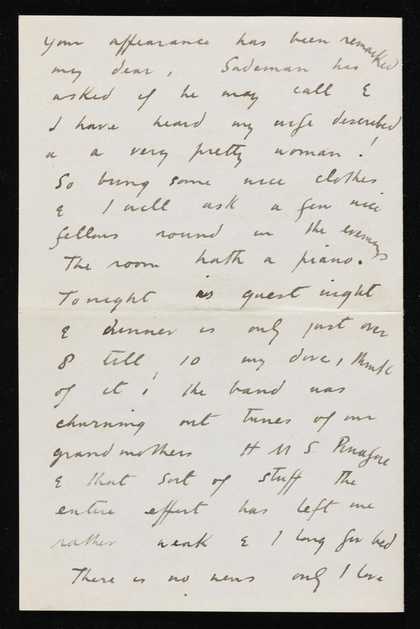 your appearance has been remarked
my dear, Sademan has
asked if he may call &
I have heard my wife described
as a very pretty woman!
So bring some nice clothes
& I will ask a few nice
fellows round in the evenings
The room hath a piano.
Tonight is guest night
& dinner is only just over
8 till 10 my dove, think
of it! the band was
churning out tunes of our
grandmothers H M S Pinafore
& that sort of stuff The
entire effort has left me
rather weak & I long for bed
There is no news only I love